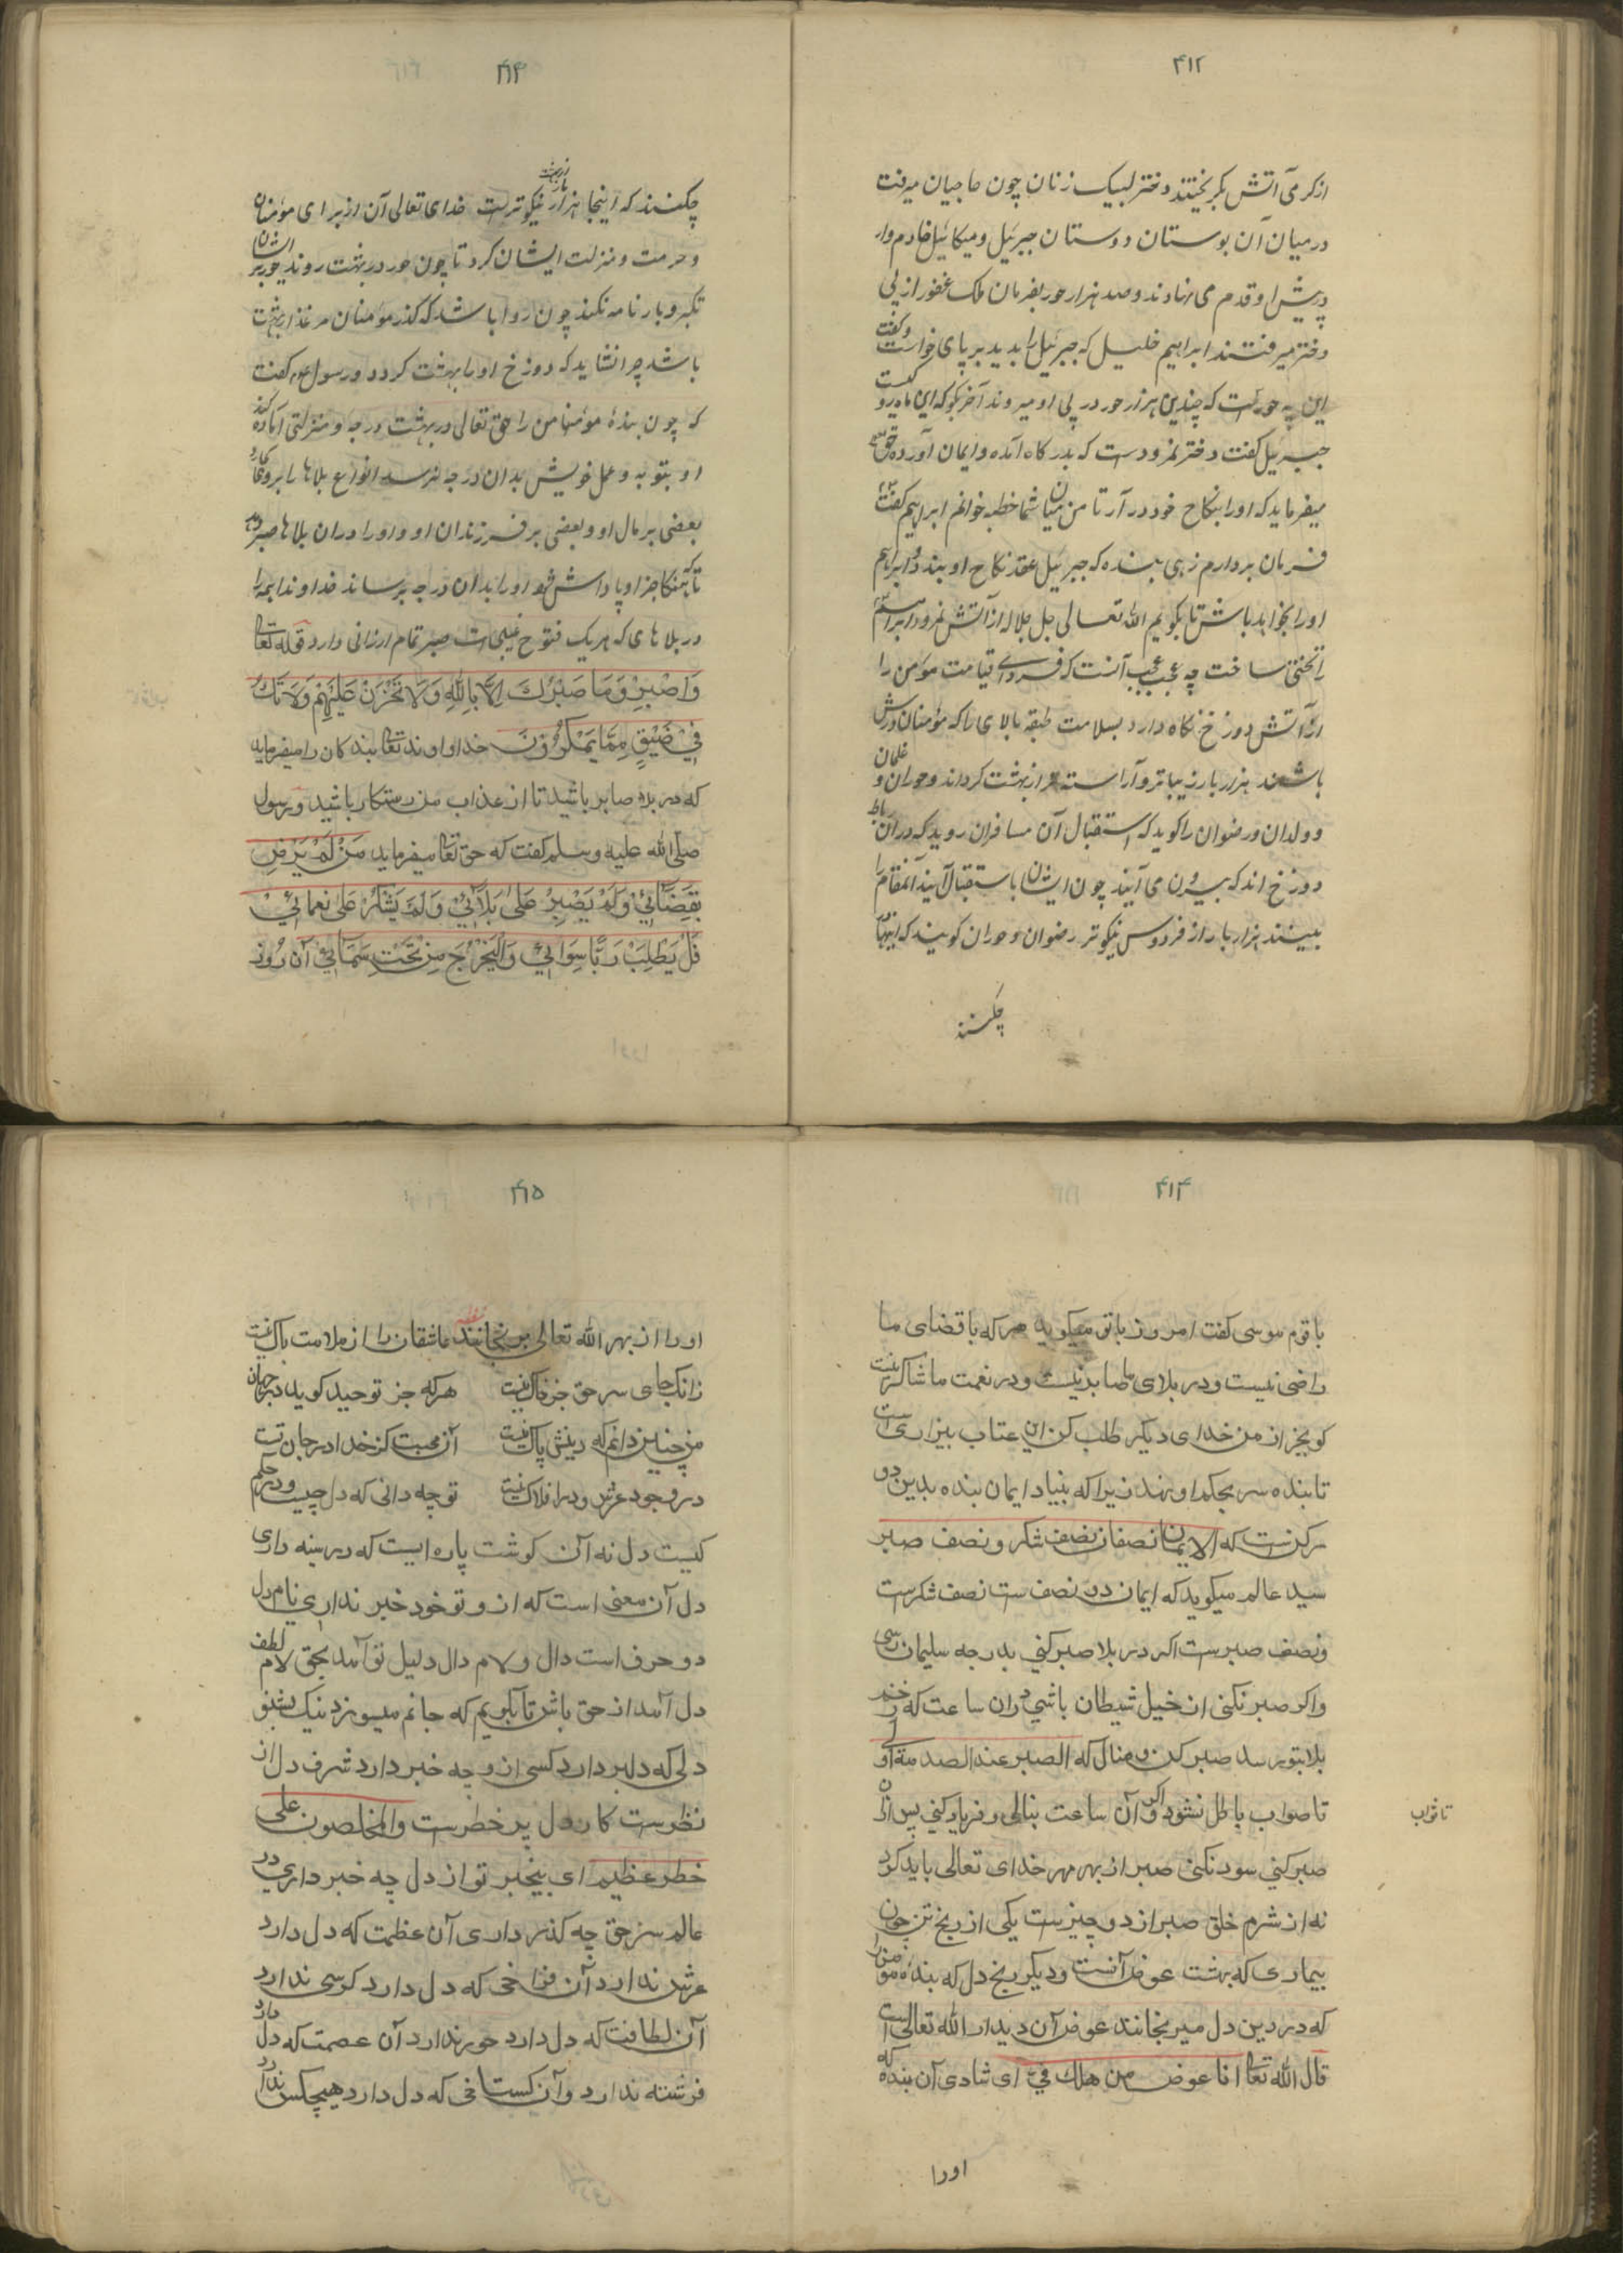 ۴۱۲
از کرمی آتش بکریختند دختر لبیک زنان چون حاجیان میرفت
در میان آن بوستان دوستان جبرئیل و میکائیل خادم وار
در پیش او قدم می نهادند و صد هزار حور بفرمان ملک غفور از پی
دختر میرفتند ابراهیم خلیل که جبرئیل را بدید بر پای خواست و کفت
این چه حورست که چندین هزار حور در پی او میروند آخر بکو که این ماه رو کیست
جبرئیل کفت دختر نمرودست که بدرکاه آمده و ایمان آورده حق
میفرماید که او را بنکاح خود در آر تا من میان شما خطبه خوانم ابراهیم کفت
فرمان بردارم زهی بنده که جبرئیل عقد نکاح او بندد و ابراهیم
او را بخواهد باش تا بکویم الله تعالی جل جلاله از آتش نمرود ابراهیم
را تختی ساخت چه عجب عجب آنست که فردای قیامت مومن را
از آتش دوزخ نکاه دارد بسلامت طبقه بالای را که مومنان درش
باشند هزار بار زیباتر و آراسته تر از بهشت کرداند و حوران و غلمان
و ولدان و رضوان را کوید که استقبال آن مسافران روید که در آن رباط
دوزخ اند که بیرون می آیند چون ایشان باستقبال آیند آنمقام را
ببینند هزار بار از فردوس نیکوتر رضوان و حوران کویند که اینها
چکنند
۴۱۳
چکنند که اینجا هزار بار از بهشت نیکوترست خدای تعالی آن از برای مومنان
و حرمت و منزلت ایشان کرد تا چون حور در بهشت روند حور بر ایشان
تکبر و بارنامه نکند چون روا باشد که کذر مومنان مرغذار بهشت
باشد چرا نشاید که دوزخ او را بهشت کردد و رسول عم کفت
که چون بنده مومنا من را حق تعالی در بهشت درجه و منزلتی آماده کند
او بتوبه و عمل خویش بدان درجه نرسد انواع بلاها را برو کمارد
بعضی بر مال او و بعضی بر فرزندان او و او را در آن بلاها صبر دهد
تا بهنکام جزا و پاداش او را بدان درجه برساند خداوندا همه را
در بلاهای که هر یک فتوح غیبی است صبر تمام ارزانی دارد قوله تعالی
وَاصْبِرْ وَمَا صَبْرُكَ اِلَّا بِاللّٰهِ وَلَا تَحْزَنْ عَلَيْهِمْ وَلَا تَكُ
فِي ضَيْقٍ مِمَّا يَمْكُرُونَ خداوند تعالی بندکان را میفرماید
که در بلاء صابر باشید تا از عذاب من رستکار باشید و رسول
صلی الله علیه و سلم کفت که حق تعالی میفرماید مَنْ لَمْ يَرْضِ
بِقَضَائِي وَلَمْ يَصْبِرْ عَلَى بَلَائِي وَلَمْ يَشْكُرْ عَلَى نَعْمَائِي
فَلْيَطْلُبْ رَبًّا سِوَائِي وَالْيَخْرُجْ مِنْ تَحْتِ سَمَائِي آن روز
۴۱۴
با قوم موسی کفت امروز با تو میکوید هر که با قضای ما
راضی نیست و در بلای ما صابر نیست و در نعمت ما شاکر نیست
کو بجز از من خدای دیکر طلب کن این عتاب بیزاری است
تا بنده سر بحکم او نهد زیرا که بنیاد ایمان بنده بدین دو
رکن است که الایمان نصفان نصف شکر و نصف صبر
سید عالم میکوید که ایمان دو نصف ست نصف شکرست
و نصف صبرست اکر در بلا صبر کنی بدرجه سلیمان رسی
و اکر صبر نکنی از خیل شیطان باشی در آن ساعت که
بلا بتو رسد صبر کن و منال که الصبر عند الصدمة الاولی
تا صواب باطل نشود و اکر آن ساعت بنالی و فریاد کنی پس از آن
تا ثواب
صبر کنی سود نکنی صبر از بهر مهر خدای تعالی باید کرد
نه از شرم خلق صبر از دو چیزست یکی از رنج تن چون
بیماری که بهشت عوض آنست و دیکر رنج دل که بنده مومن را
که در دین دل میرنجانند عوض آن دیدار الله تعالی است
قال الله تعالی انا عوض من هلك فیّ ای شادی آن بنده که
اورا
۴۱۵
او را از بهر الله تعالی برنجانند عاشقان را از ملامت باک نیست
زانک جای سر حق جز خاک نیست هر که جز توحید کوید در جهان
من چنین دانم که دینش پاک نیست آن محبت کز خدا در جان تست
در وجود عرش و در افلاک نیست تو چه دانی که دل چیست و در حکم
کیست دل نه آن کوشت پاره ایست که در سینه داری
دل آن معنی است که از و تو خود خبر نداری نام دل
دو حرف است دال و لام دال دلیل تو آمد بحق لام لطف
دل آمد از حق باش تا بکویم که جانم میسوزد نیک بشنو
دلی که دلبر دارد کسی از و چه خبر دارد شرف دل از
نظرست کار دل پر خطرست والمخلصون علی
خطر عظیم ای بیخبر تو از دل چه خبر داری در
عالم سر حق چه کذر داری آن عظمت که دل دارد
عرش ندارد آن فراخی که دل دارد کرسی ندارد
آن لطافت که دل دارد حور ندارد آن عصمت که دل دارد
فرشته ندارد و آن کستاخی که دل دارد هیچکس ندارد